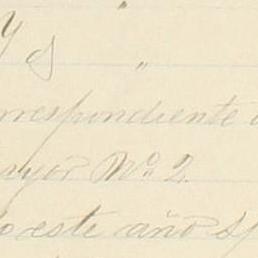 y d "
rrespondiente a
ayor No 2.
o este año Sp